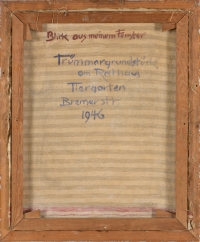 Blick aus meinem Fenster
Trümmergrundstück
am Rathaus
Tiergarten
Bremerstr.
1946